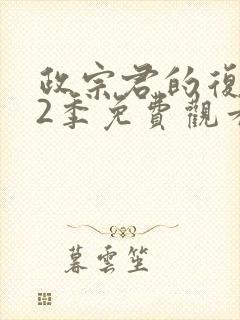 政宗君的復
2季免費觀看
暮雲笙